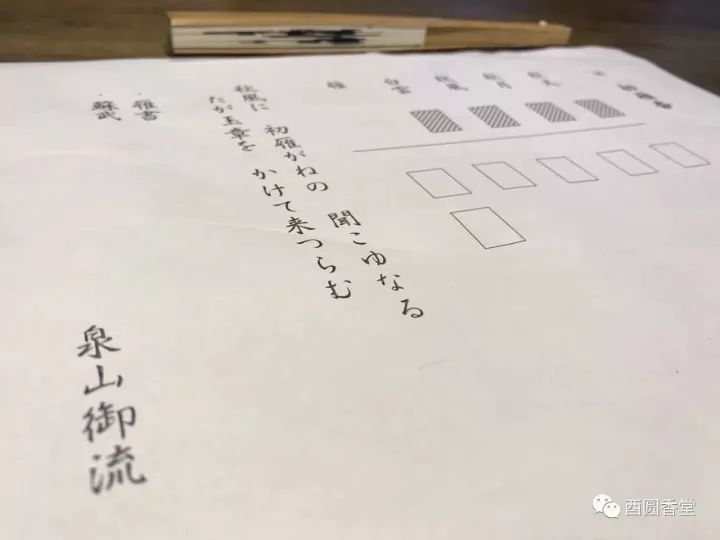 初雁香
秋月
秋風
白雲
雁
秋風に 初雁がねの 聞こゆなる
たが玉章を かけて来つらむ
・雁書
・蘇武
泉山御流
酉圆香堂